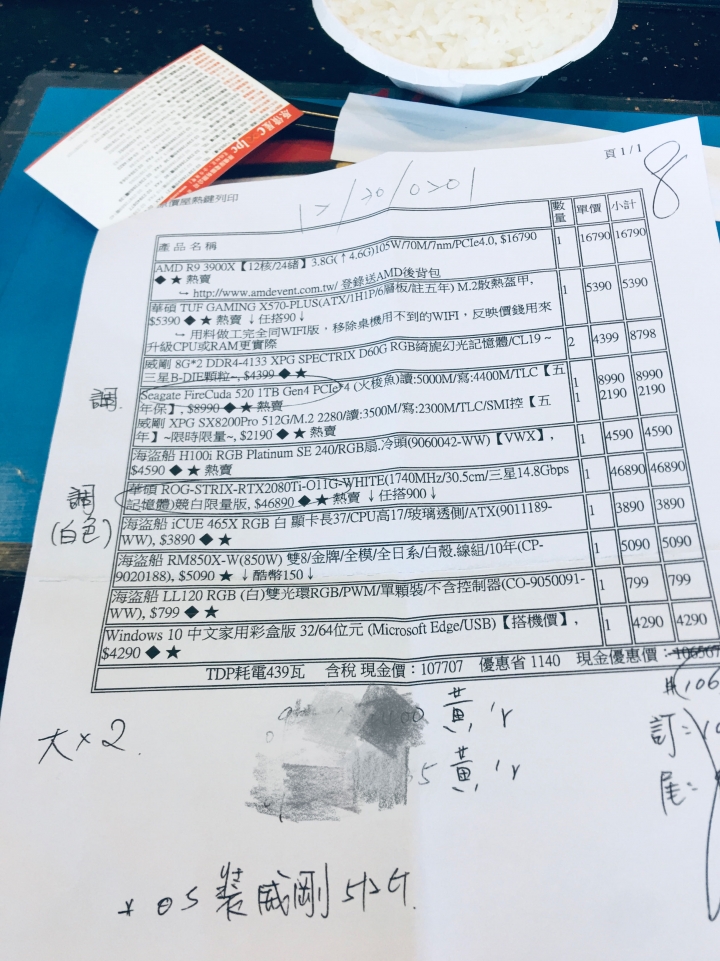 原價屋熱鍵列印
頁 1 / 1
8
產品名稱 數量 單價 小計
AMD R9 3900X【12核/24緒】3.8G(↑4.6G)105W/70M/7nm/PCIe4.0, $16790 1 16790 16790
◆ ★ 熱賣
↪ http://www.amdevent.com.tw/ 登錄送AMD後背包
華碩 TUF GAMING X570-PLUS(ATX/1H1P/6層板/註五年) M.2散熱盔甲, 1 5390 5390
$5390 ◆ ★ 熱賣 ↓任搭90↓
↪ 用料做工完全同WIFI版，移除桌機用不到的WIFI，反映價錢用來
升級CPU或RAM更實際
威剛 8G*2 DDR4-4133 XPG SPECTRIX D60G RGB綺旎幻光記憶體/CL19~ 2 4399 8798
三星B-DIE顆粒~, $4399 ◆ ★
調
Seagate FireCuda 520 1TB Gen4 PCIe*4 (火梭魚)讀:5000M/寫:4400M/TLC【五 1 8990 8990
年保】, $8990 ◆ ★ 熱賣
威剛 XPG SX8200Pro 512G/M.2 2280/讀:3500M/寫:2300M/TLC/SMI控【五 1 2190 2190
年】~限時限量~, $2190 ◆ ★ 熱賣
海盜船 H100i RGB Platinum SE 240/RGB扇.冷頭(9060042-WW)【VWX】, 1 4590 4590
$4590 ◆ ★ 熱賣
調
(白色)
華碩 ROG-STRIX-RTX2080Ti-O11G-WHITE(1740MHz/30.5cm/三星14.8Gbps 1 46890 46890
記憶體)競白限量版, $46890 ◆ ★ 熱賣 ↓任搭900↓
海盜船 iCUE 465X RGB 白 顯卡長37/CPU高17/玻璃透側/ATX(9011189- 1 3890 3890
WW), $3890 ◆ ★
海盜船 RM850X-W(850W) 雙8/金牌/全模/全日系/白殼.線組/10年(CP- 1 5090 5090
9020188), $5090 ★ ↓酷幣150↓
海盜船 LL120 RGB (白)雙光環RGB/PWM/單顆裝/不含控制器(CO-9050091- 1 799 799
WW), $799 ◆ ★
Windows 10 中文家用彩盒版 32/64位元 (Microsoft Edge/USB)【搭機價】, 1 4290 4290
$4290 ◆ ★
TDP耗電439瓦 含稅 現金價：107707 優惠省 1140 現金優惠價：106567
訂=
尾=
大×2.
黃
黃
* OS 裝威剛 512G